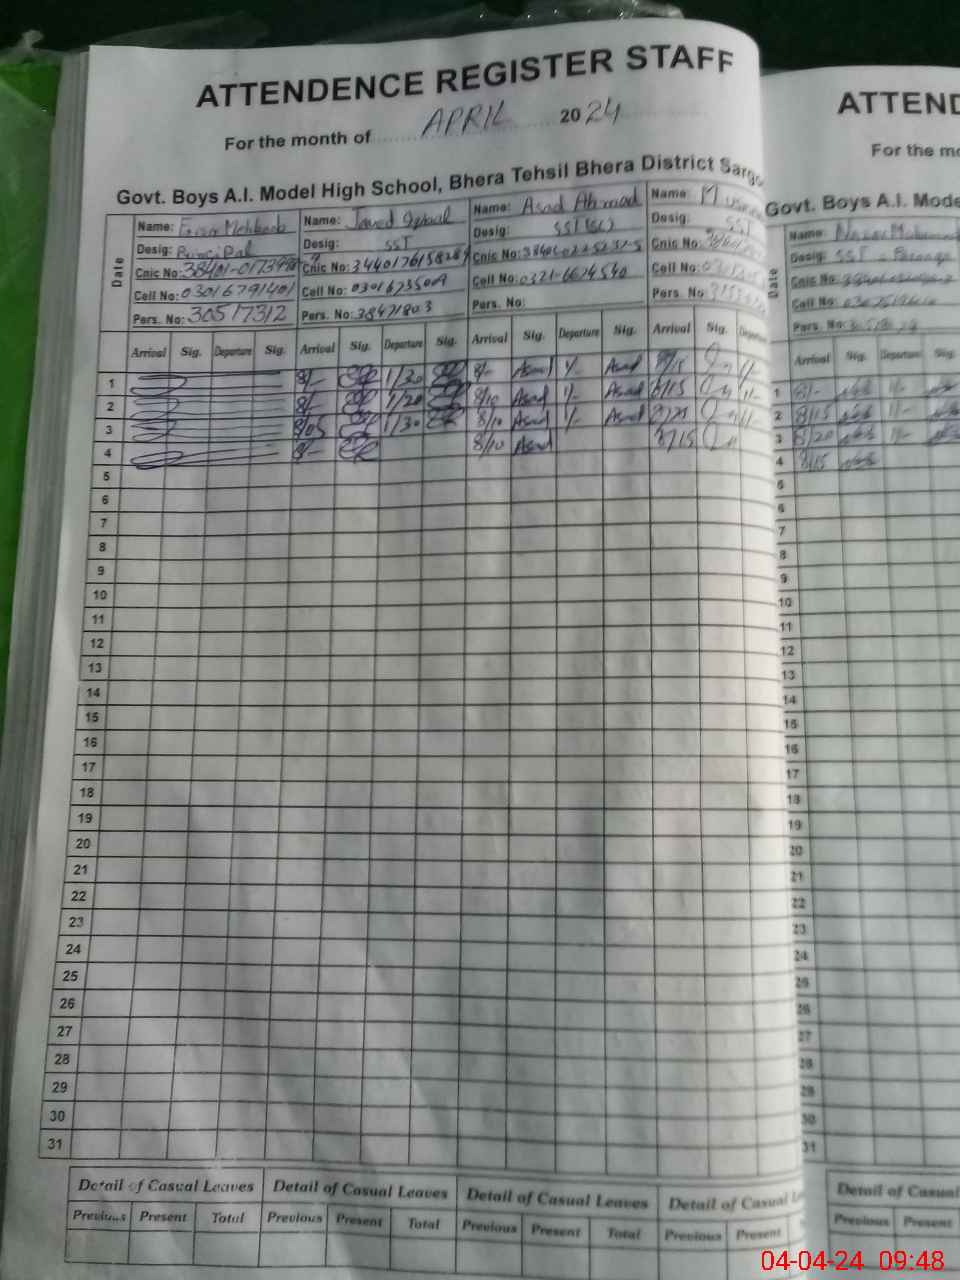 ATTENDENCE REGISTER STAFF
For the month of APRIL 2024
Govt. Boys A.I. Model High School, Bhera Tehsil Bhera District Sargo
Date
Name: Mehboob
Desig: Principal
Cnic No: 38401-
Cell No: 03016791401
Pers. No: 30517312
Name: Javed Iqbal
Desig: SST
Cnic No:
Cell No:
Pers. No: 38471803
Name: Asad Ahmad
Desig: SST(sc)
Cnic No:
Cell No: 0321-6624540
Pers. No:
Name: M
Desig: SST
Cnic No:
Cell No:
Pers. No:
Arrival Sig. Departure Sig. Arrival Sig. Departure Sig. Arrival Sig. Departure Sig. Arrival Sig. Depart
1 8/- 1/30 8/- Asad 1/- Asad 8/15 1/-
2 8/- 1/20 8/10 Asad 1/- Asad 8/15 1/-
3 8/05 1/30 8/10 Asad 1/- Asad 1/-
4 8/- 8/10 Asad 8/15
5
6
7
8
9
10
11
12
13
14
15
16
17
18
19
20
21
22
23
24
25
26
27
28
29
30
31
Detail of Casual Leaves Detail of Casual Leaves Detail of Casual Leaves Detail of Casual L
Previous Present Total Previous Present Total Previous Present Total Previous Present
ATTEND
For the mo
Govt. Boys A.I. Mode
Date
Name:
Desig: SST
Cnic No:
Cell No:
Pers. No:
Arrival Sig. Departure Sig.
1 8/- 1/-
2 8/15 1/-
3 8/20 1/-
4 8/15
5
6
7
8
9
10
11
12
13
14
15
16
17
18
19
20
21
22
23
24
25
26
27
28
29
30
31
Detail of Casual
Previous Present
04-04-24 09:48